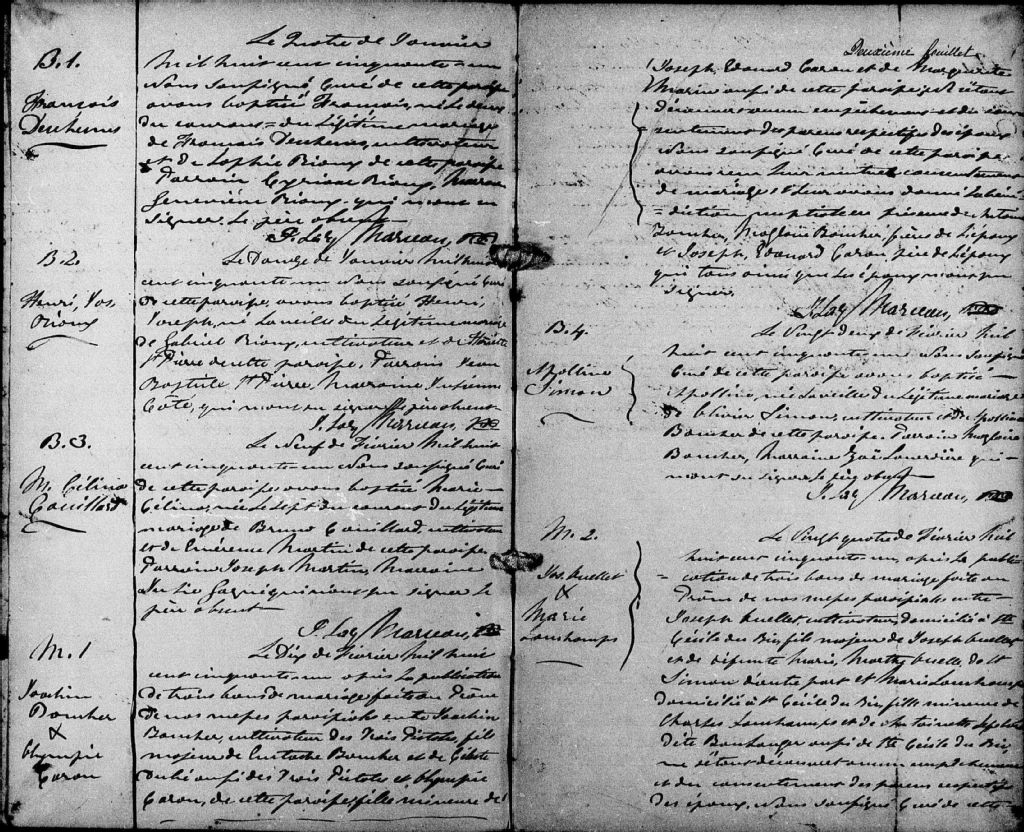 B.1.
François
Deschenes
Le Quatre de Janvier
Mil huit cent cinquante-un
Nous soussigné Curé de cette paroisse
avons baptisé François, né le deux
du courant du légitime mariage
de François Deschenes, cultivateur
et de Sophie Rioux de cette paroisse
Parrain Cyriac Rioux, Marraine
Geneviève Rioux qui n'ont su
signer. Le père absent
J. Laz. Marceau, Ptre
B.2.
Henri, Jos.
Rioux
Le Douze de Janvier Mil huit
cent cinquante un Nous soussigné Curé
de cette paroisse, avons baptisé Henri,
Joseph, né la veille du légitime mariage
de Gabriel Rioux, cultivateur et de Henriette
St Pierre de cette paroisse. Parrain Jean
Baptiste St Pierre, Marraine
Côté, qui n'ont su signer le père absent
J. Laz. Marceau, Ptre
B.3.
M. Célina
Couillard
Le Neuf de Février Mil huit
cent cinquante un Nous soussigné Curé
de cette paroisse, avons baptisé Marie
Célina, née le sept du courant du légitime
mariage de Bruno Couillard, cultivateur
et de Emérence Martin de cette paroisse
Parrain Joseph Martin, Marraine
Julie Gagné qui n'ont su signer le
père absent
J. Laz. Marceau, Ptre
M.1
Joachin
Boucher
&
Olympie
Caron
Le Dix de Février Mil huit
cent cinquante un après la publication
de trois bans de mariage faite au Prône
de nos messes paroissiales entre Joachin
Boucher, cultivateur des Trois Pistoles, fils
majeur de Eustache Boucher et de Céleste
Dubé aussi des Trois Pistoles et Olympie
Caron, de cette paroisse, fille mineure de
Deuxième feuillet
Joseph, Edouard Caron et de Marguerite
Marin aussi de cette paroisse; ne s'étant
découvert aucun empêchement et du con-
sentement des parens respectifs des époux
Nous soussigné Curé de cette paroisse
avons reçu leur mutuel consentement
de mariage et leur avons donné la béné-
-diction nuptiale en présence de
Boucher, Magloire Boucher, frères de l'époux
et Joseph, Edouard Caron, père de l'épouse
qui tous ainsi que les époux n'ont su
signer
J. Laz. Marceau, Ptre
B.4
Apolline
Simon
Le Vingt deux de Février Mil
huit cent cinquante un Nous soussigné
Curé de cette paroisse avons baptisé
Apolline, née la veille du légitime mariage
de Olivier Simon, cultivateur et de Apolline
Boucher de cette paroisse. Parrain Magloire
Boucher, Marraine Zoé qui
n'ont su signer le père absent
J. Laz. Marceau, Ptre
M.2.
Jos. Ouellet
&
Marie
Lonchamps
Le Vingt quatre de Février Mil
huit cent cinquante un, après la publi-
-cation de trois bans de mariage faite au
Prône de nos messes paroissiales entre
Joseph Ouellet cultivateur, domicilié à Ste
Cécile du Bic, fils majeur de Joseph Ouellet
et de défunte Marie, Marthe Ouellet, de St
Simon d'autre part et Marie Lonchamps
domiciliée à Ste Cécile du Bic, fille mineure de
Charles Lonchamps et de
Boulanger aussi de Ste Cécile du Bic,
ne s'étant découvert aucun empêchement
et du consentement des parens respectifs
des époux, Nous soussigné Curé de cette